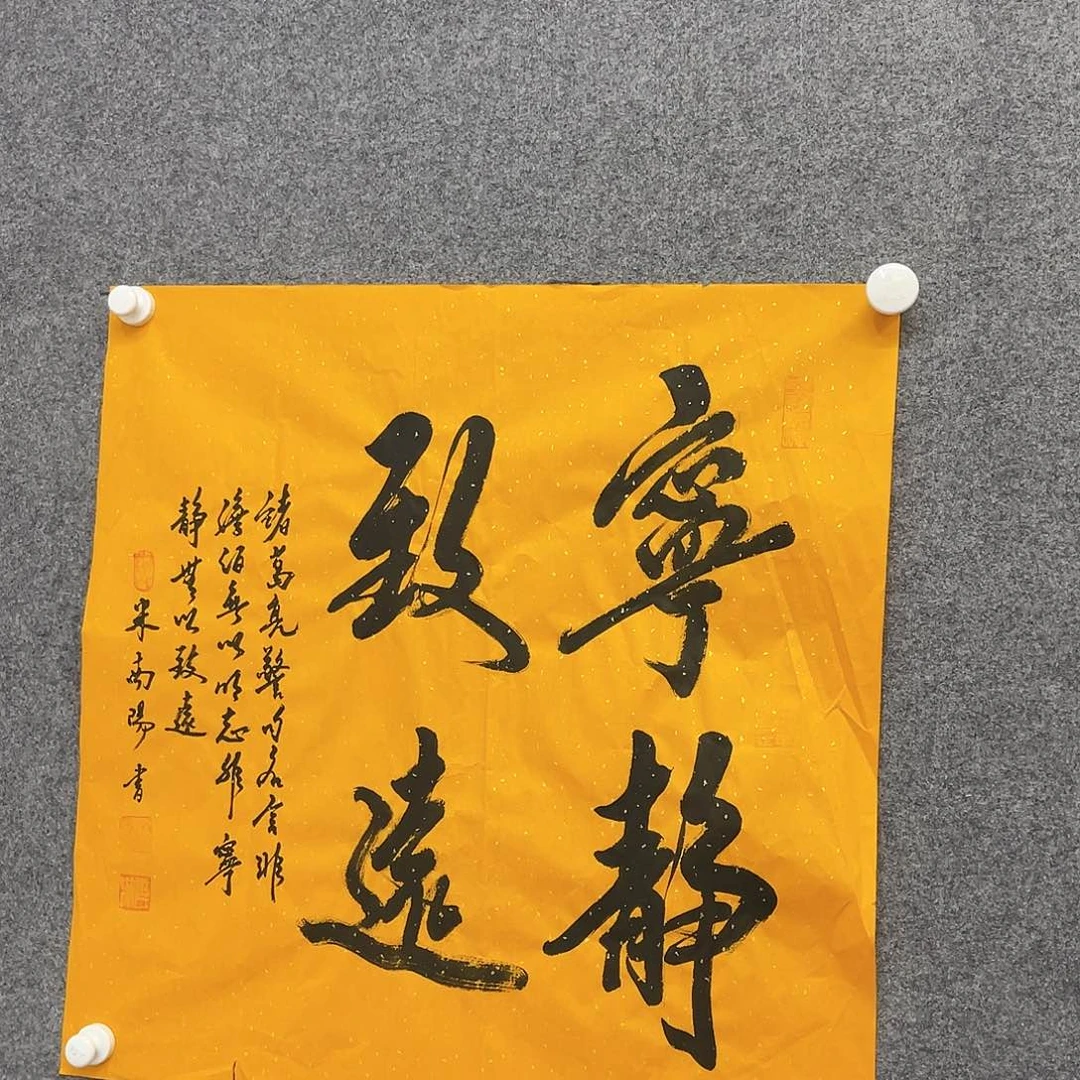 寧靜
致遠
諸葛亮警句名言非
澹泊無以明志非寧
靜無以致遠
米南陽書